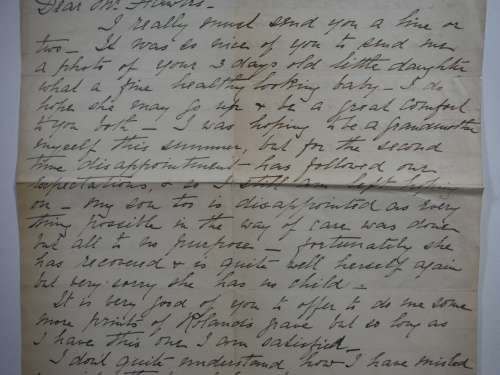 Dear Mr
I really must send you a line or
two - It was so nice of you to send me
a photo of your 3 days old little daughter
what a fine healthy looking baby - I do
hope she may go up & be a great comfort
to you both - I was hoping to be a grandmother
myself this summer, but for the second
time disappointment has followed our
expectations, & so I still am left hoping
on - my son too is disappointed as every
thing possible in the way of care was done
but all to no purpose - fortunately she
has recovered & is quite well herself again
but very sorry she has no child -
It is very good of you to offer to do me some
more prints of Roland's grave but so long as
I have this one I am satisfied -
I don't quite understand how I have misled